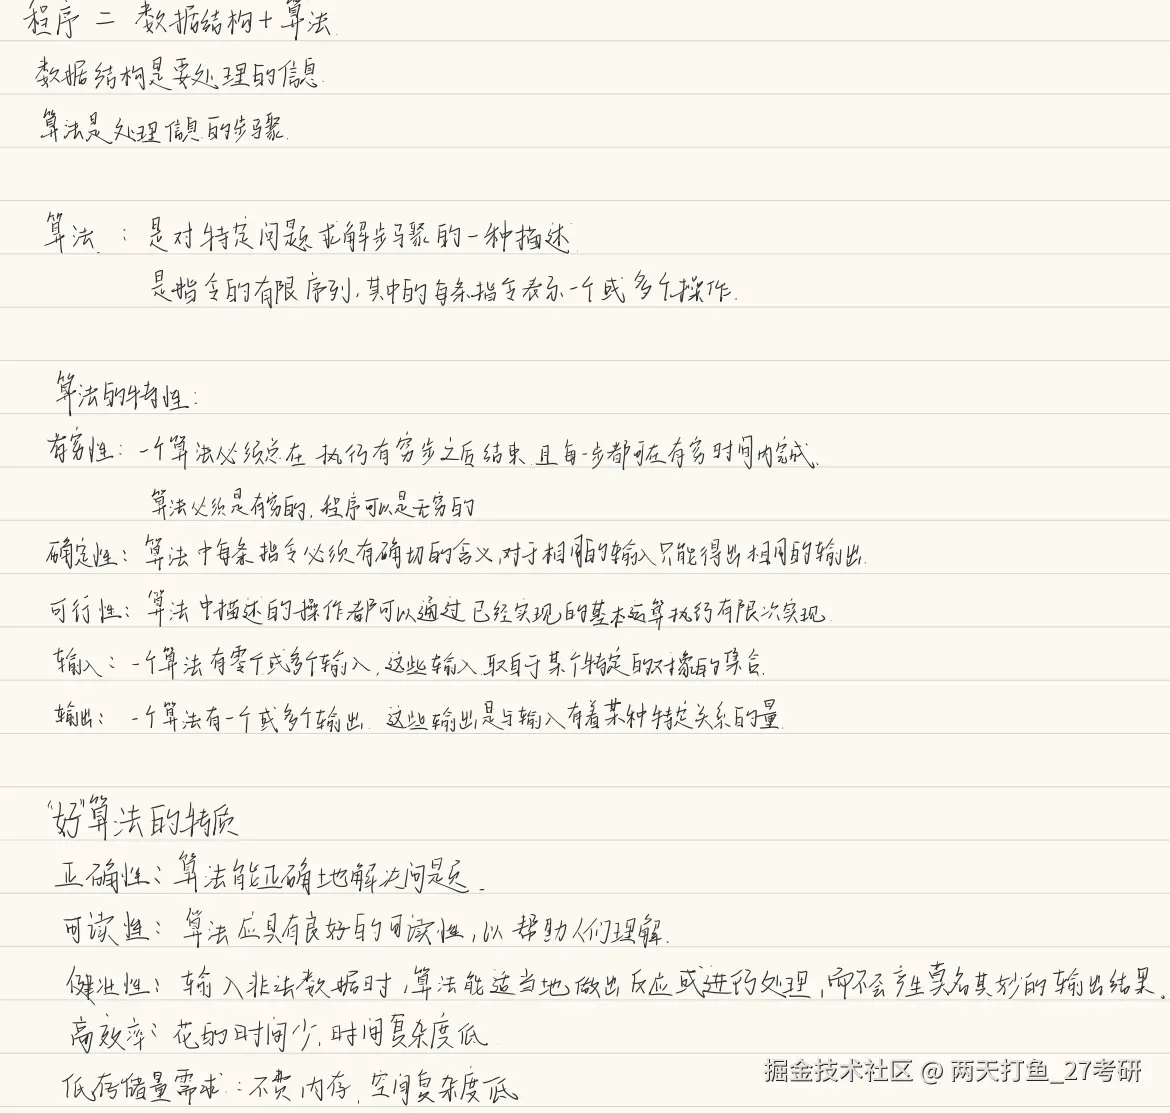 程序 = 数据结构+算法.
数据结构是要处理的信息.
算法是处理信息的步骤.
算法 : 是对特定问题求解步骤的一种描述.
是指令的有限序列,其中的每条指令表示一个或多个操作.
算法的特性:
有穷性: 一个算法必须总在执行有穷步之后结束,且每一步都可在有穷时间内完成.
算法必须是有穷的,程序可以是无穷的
确定性: 算法中每条指令必须有确切的含义,对于相同的输入只能得出相同的输出.
可行性: 算法中描述的操作都可以通过已经实现的基本运算执行有限次实现.
输入: 一个算法有零个或多个输入,这些输入取自于某个特定的对象的集合.
输出: 一个算法有一个或多个输出.这些输出是与输入有着某种特定关系的量.
“好”算法的特质
正确性: 算法能正确地解决问题.
可读性: 算法应具有良好的可读性,以帮助人们理解.
健壮性: 输入非法数据时,算法能适当地做出反应或进行处理,而不会产生莫名其妙的输出结果.
高效率: 花的时间少.时间复杂度低
低存储量需求: 不费内存.空间复杂度低
掘金技术社区 @ 两天打鱼_27考研